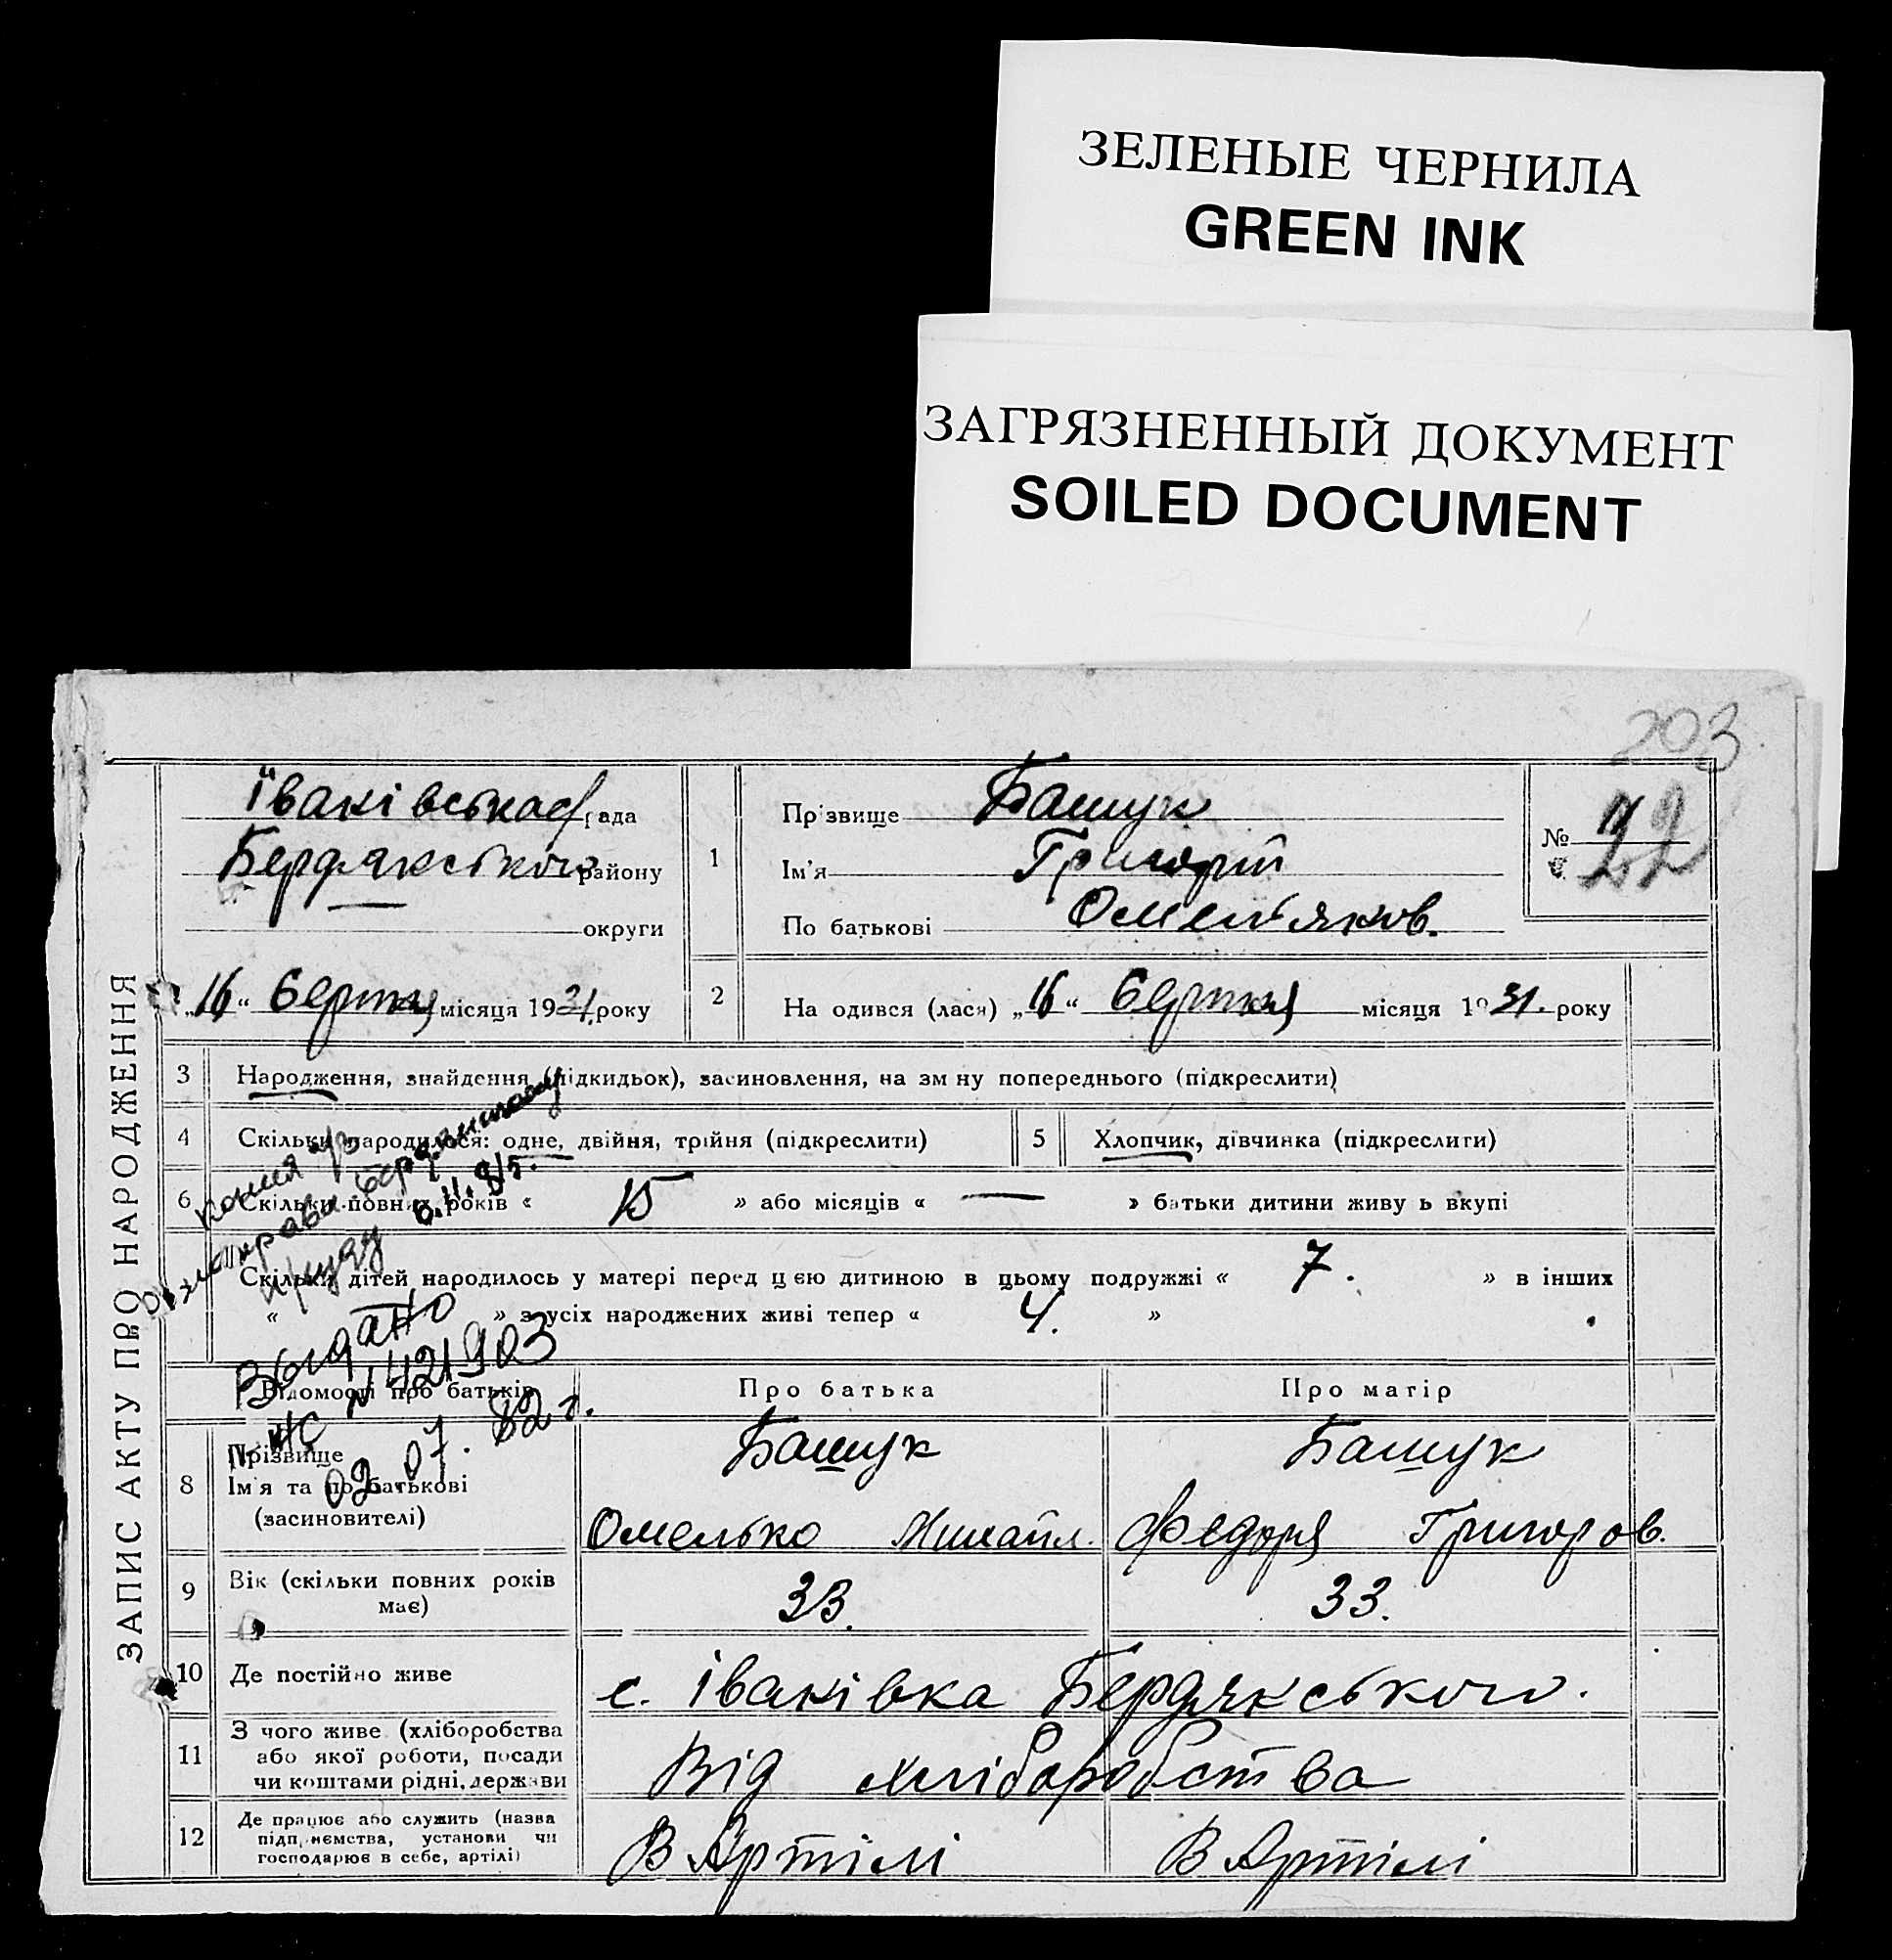 ЗЕЛЕНЫЕ ЧЕРНИЛА
GREEN INK
ЗАГРЯЗНЕННЫЙ ДОКУМЕНТ
SOILED DOCUMENT
203
ЗАПИС АКТУ ПРО НАРОДЖЕННЯ
Іванівська рада
Бердянського району
округи
„16“ Серпня місяця 1931 року
1
Прізвище Башук
Ім'я Григорій
По батькові Омельянов.
№ 22
2 На одився (лася) „16“ Серпня місяця 1931. року
3 Народження, знайдення (підкидьок), засиновлення, на зм ну попереднього (підкреслити)
4 Скільки народилося: одне, двійня, трійня (підкреслити)
5 Хлопчик, дівчинка (підкреслити)
6 Скільки повних років « 15 » або місяців « — » батьки дитини живу ь вкупі
Скільки дітей народилось у матері перед ц єю дитиною в цьому подружжі « 7. » в інших
« » з усіх народжених живі тепер « 4. »
копия а/з
Выдано
N 421903
02 07. 82 г.
Відомості про батьків Про батька Про матір
8 Прізвище
Ім'я та по батькові
(засиновителі)
Башук Башук
Омелько Михайл. Федоря Григоров.
9 Вік (скільки повних років має) 33. 33.
10 Де постійно живе с. Іванівка Бердянського.
11 З чого живе (хліборобства
або якої роботи, посади
чи коштами рідні, держави
Від хліборобства
12 Де працює або служить (назва
підп иємства, установи чи
господарює в себе, артілі)
В Артілі В Артілі